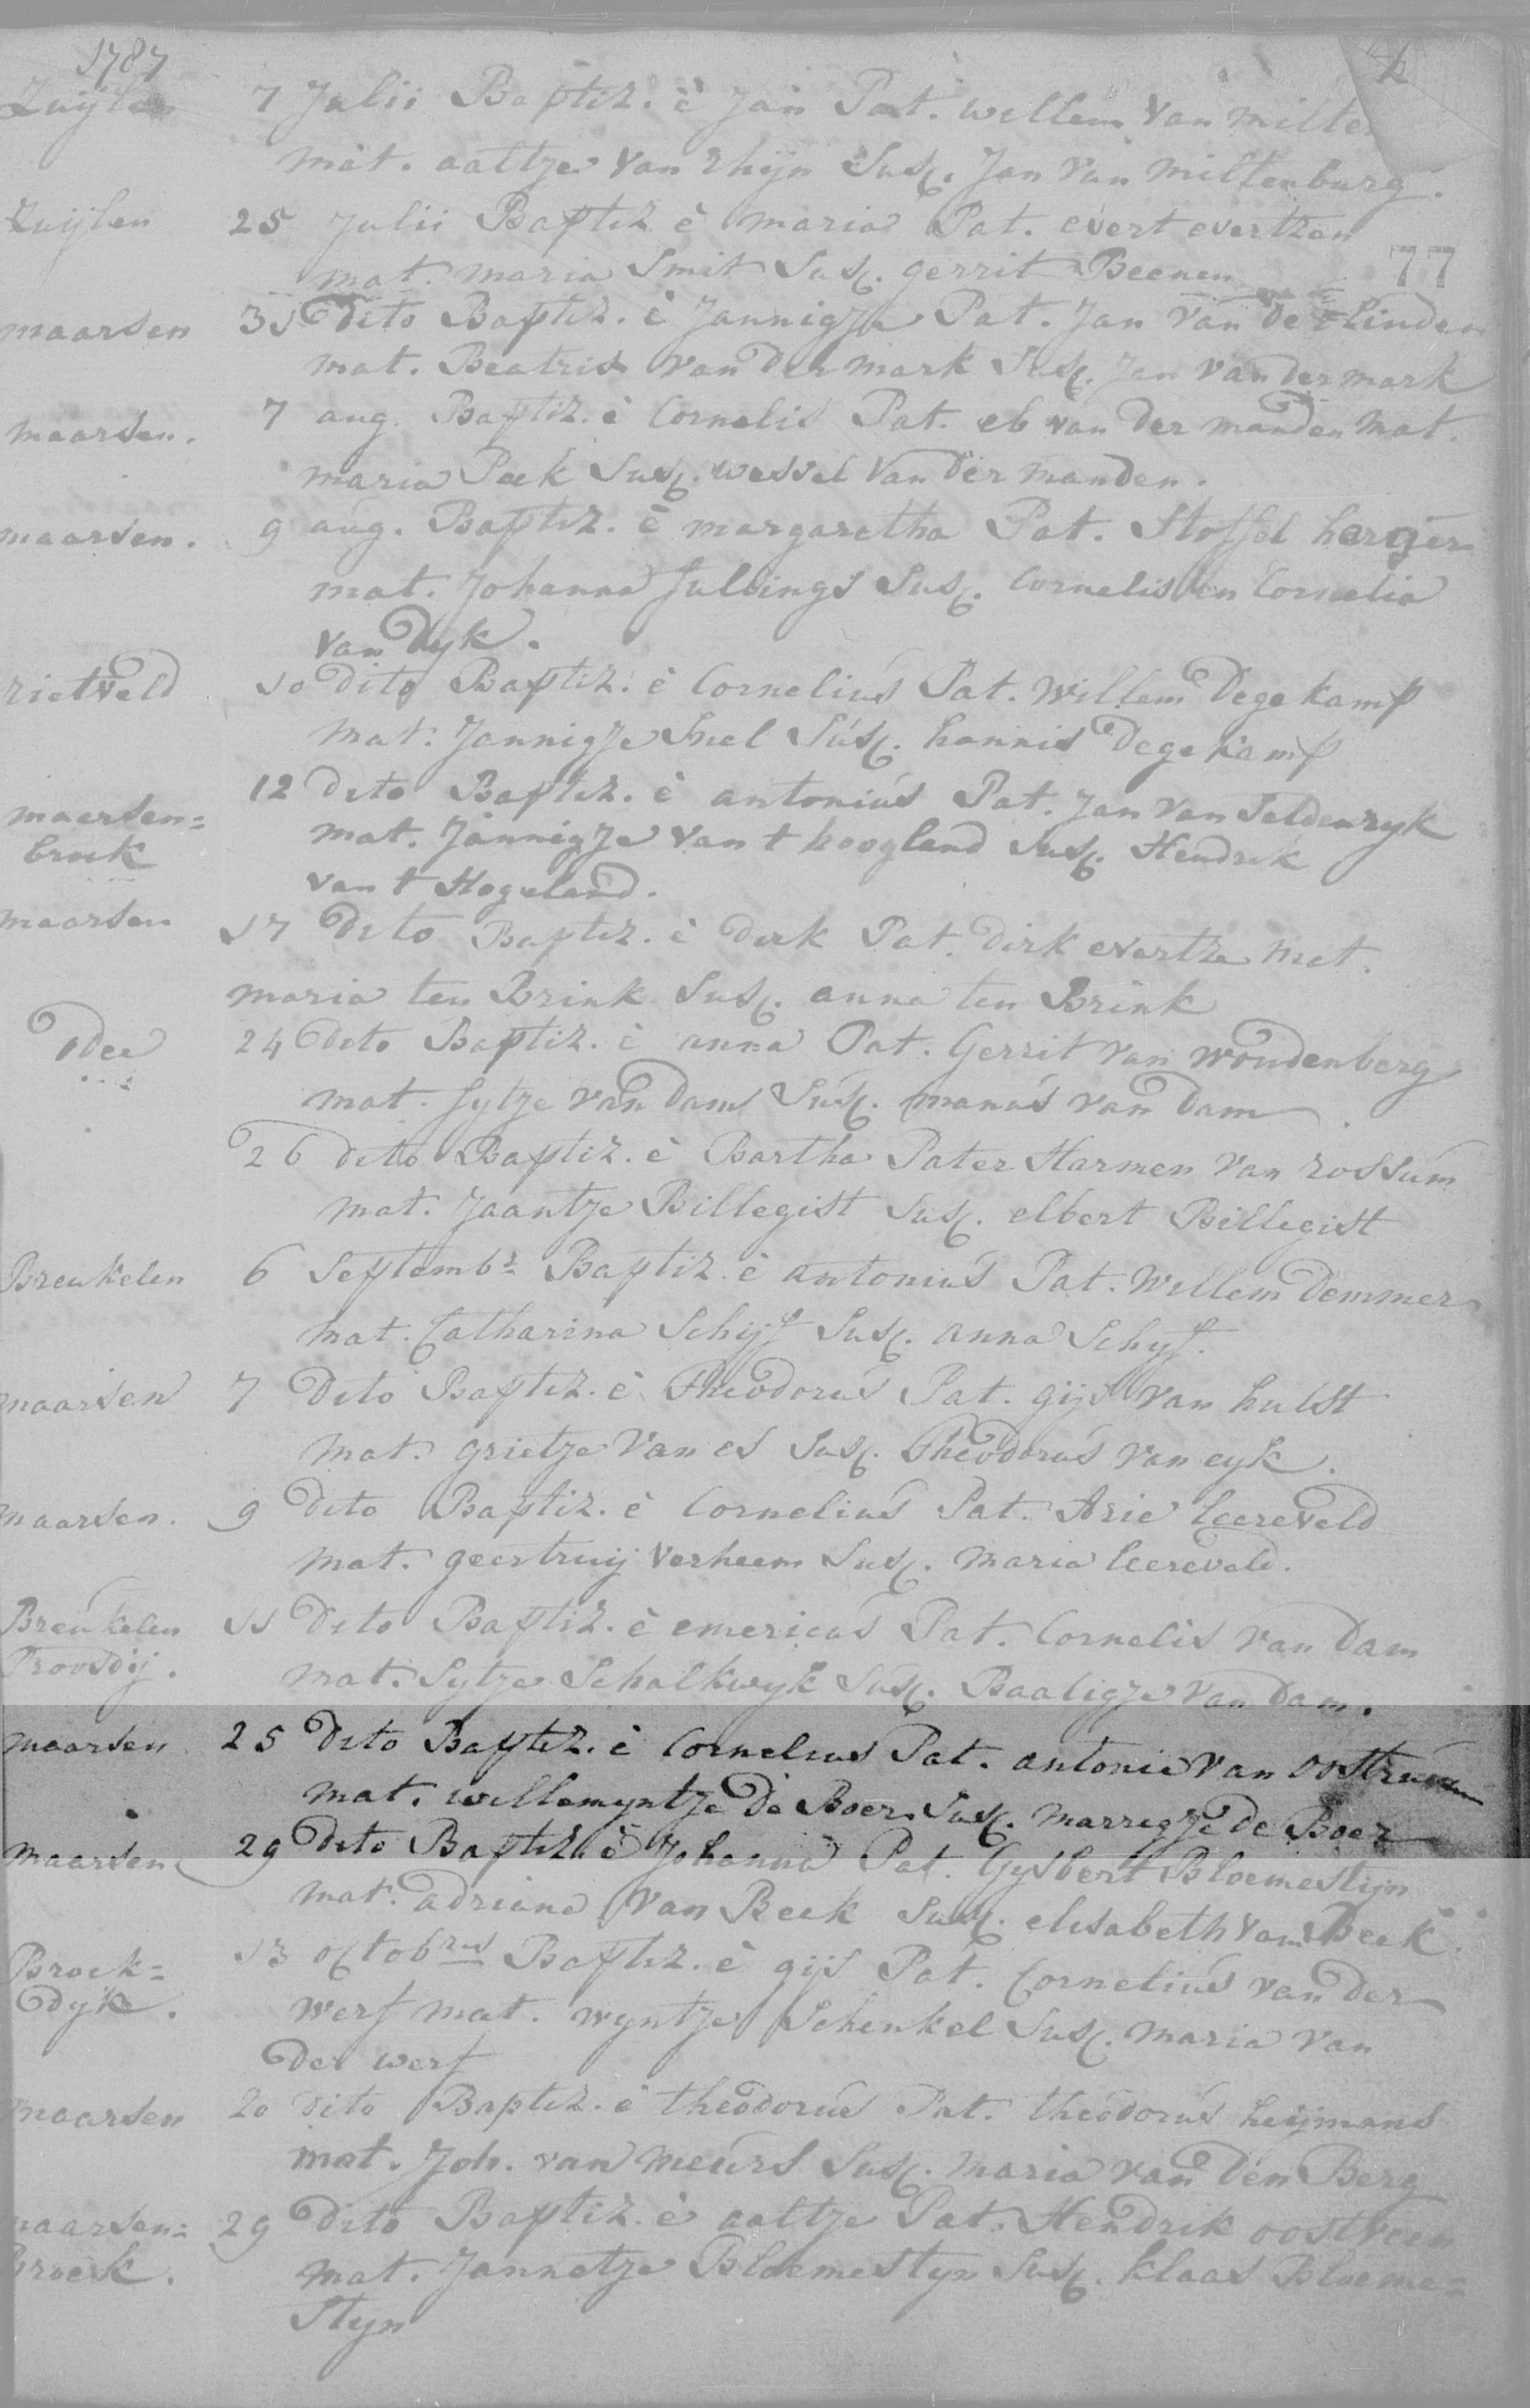 1787
Zuijlen 7 Julii Baptiz. è Jan Pat. willem van milte
mat. aaltze van rhijn Susc. Jan van miltenburg.
Zuijlen 25 Julii Baptiz è maria Pat. evert evertzen
mat. maria Smit Susc. gerrit Beenen 77
maarsen 31 dito Baptiz. è Jannigje Pat. Jan van de Linden
mat. Beatris van der mark Susc. Jan van der mark
maarsen. 7 aug. Baptiz. è Cornelis Pat. eb van der manden mat.
maria Pek Susc. wessel van der manden.
maarsen. 9 aug. Baptiz. è margaretha Pat. Stoffel
mat. Johanna Sullings Susc. Cornelis en Cornelia
van Dyk.
rietveld 10 dito Baptiz. è Cornelius Pat. Willem Degekamp
mat. Jannigje Snel Susc. hannis Degekamp
maersen= 12 dito Baptiz. è antonius Pat. Jan van Seldenryk
broek mat. Jannigje van t hoogland Susc. Hendrik
van t Hogeland.
maarsen 17 dito Baptiz. è dirk Pat. Dirk evertze mat.
maria ten Brink Susc. anna ten Brink
24 dito Baptiz. è anna Pat. Gerrit van woudenberg
mat. Sytze van Dam Susc. manus van Dam
26 dito Baptiz. è Bartha Pater Harmen van rossum
mat. Jaantze Billegist Susc. elbert Billegist
Breukelen 6 Septembr Baptiz. è antonius Pat. Willem Demmer
mat. Catharina Schijf Susc. anna Schyf.
maarsen 7 dito Baptiz. è Theodorus Pat. gijs van hulst
mat. grietze van es Susc. Theodorus van eyk.
maarsen. 9 dito Baptiz. è Cornelius Pat. Arie Leereveld
mat. geertruij verheem Susc. maria leereveld.
Breukelen 11 dito Baptiz. è emericus Pat. Cornelis van Dam
Proosdij. mat. Sytze Schalkwyk Susc. Baaligje van Dam.
maarsen 25 dito Baptiz. è Cornelius Pat. antonie van oostrum
mat. willemyntze de Boer Susc. marregje de Boer
maarsen 29 dito Baptiz. è Johanna Pat. Gysbert Bloemestijn
mat. adriana van Beek Susc. elisabeth van Beek.
Broek= 13 octobris Baptiz. è gijs Pat. Cornelius van der
Dyk. werf mat. wyntze Schenkel Susc. maria van
der werf
maarsen 20 dito Baptiz. è theodorus Pat. theodorus heijmans
mat. Joh. van meurs Susc. maria van den Berg
maarsen= 29 dito Baptiz. è aaltze Pat. Hendrik oostveen
Broek. mat. Jannetze Bloemestyn Susc. klaas Bloeme=
styn